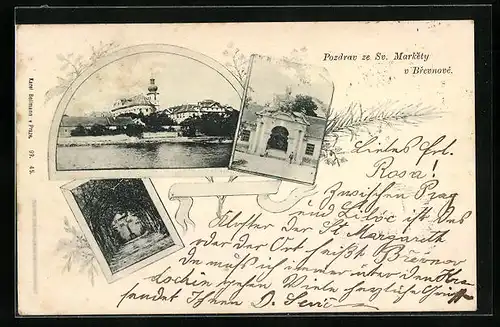 Pozdrav ze Sv. Markéty
v Břevnově.
Karel Bellmann v Praze. 97. 45.
Liebes Frl.
Rosa!
Zwischen Prag
und Liboc ist das
Kloster der St Margareth
oder der Ort heißt Břevnov
Da muß ich immer über den
gehen Viele herzliche Grüße
sendet Ihnen D.